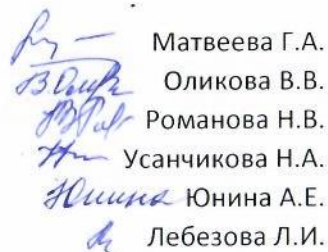 Матвеева Г.А.
Оликова В.В.
Романова Н.В.
Усанчикова Н.А.
Юнина Юнина А.Е.
Лебезова Л.И.